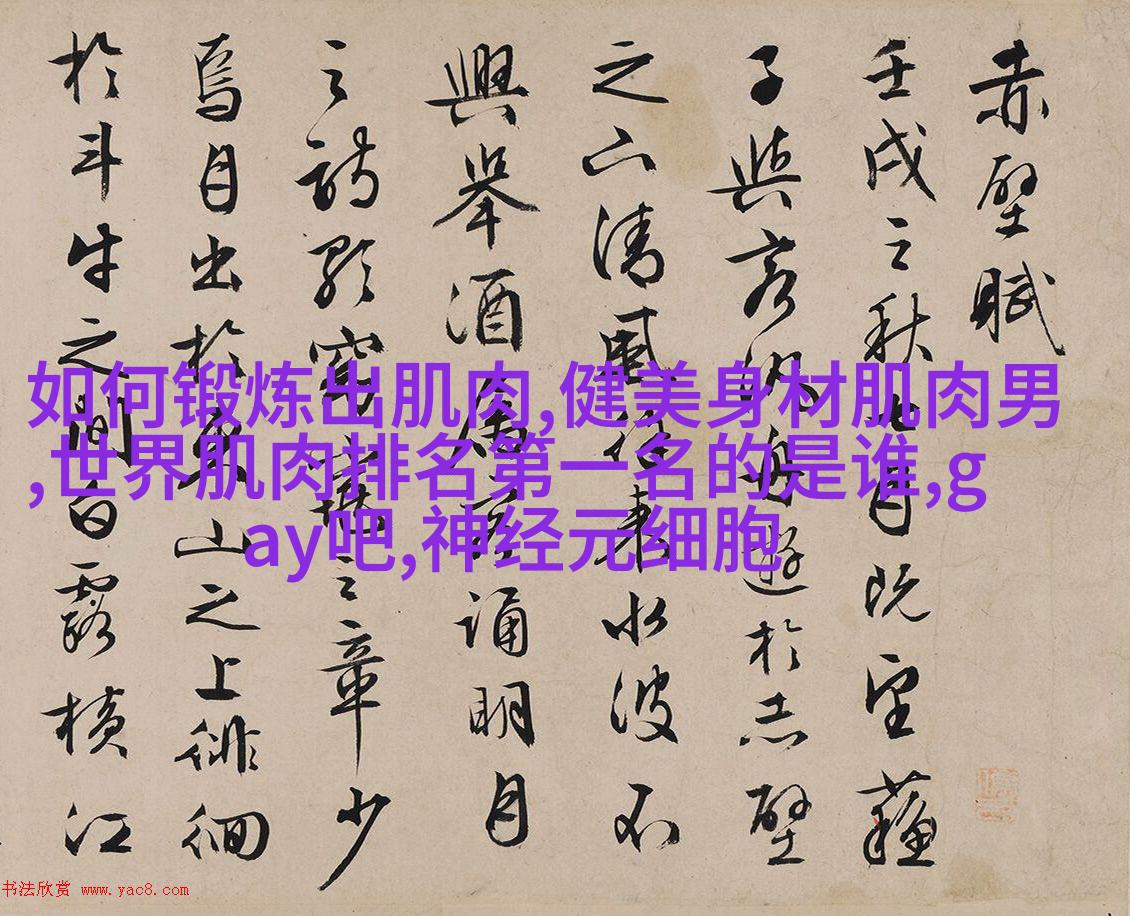 赤壁賦
壬戌之秋七月既望蘇
子與客泛舟遊於赤壁
之下清風徐來水波不
興舉酒屬客誦明月
之詩歌窈窕之章少
焉月出於東山之上徘徊
於斗牛之間白露橫江
如何锻炼出肌肉,健美身材肌肉男
,世界肌肉排名第一名的是谁,g
ay吧,神经元细胞
书法欣赏 www.yac8.com